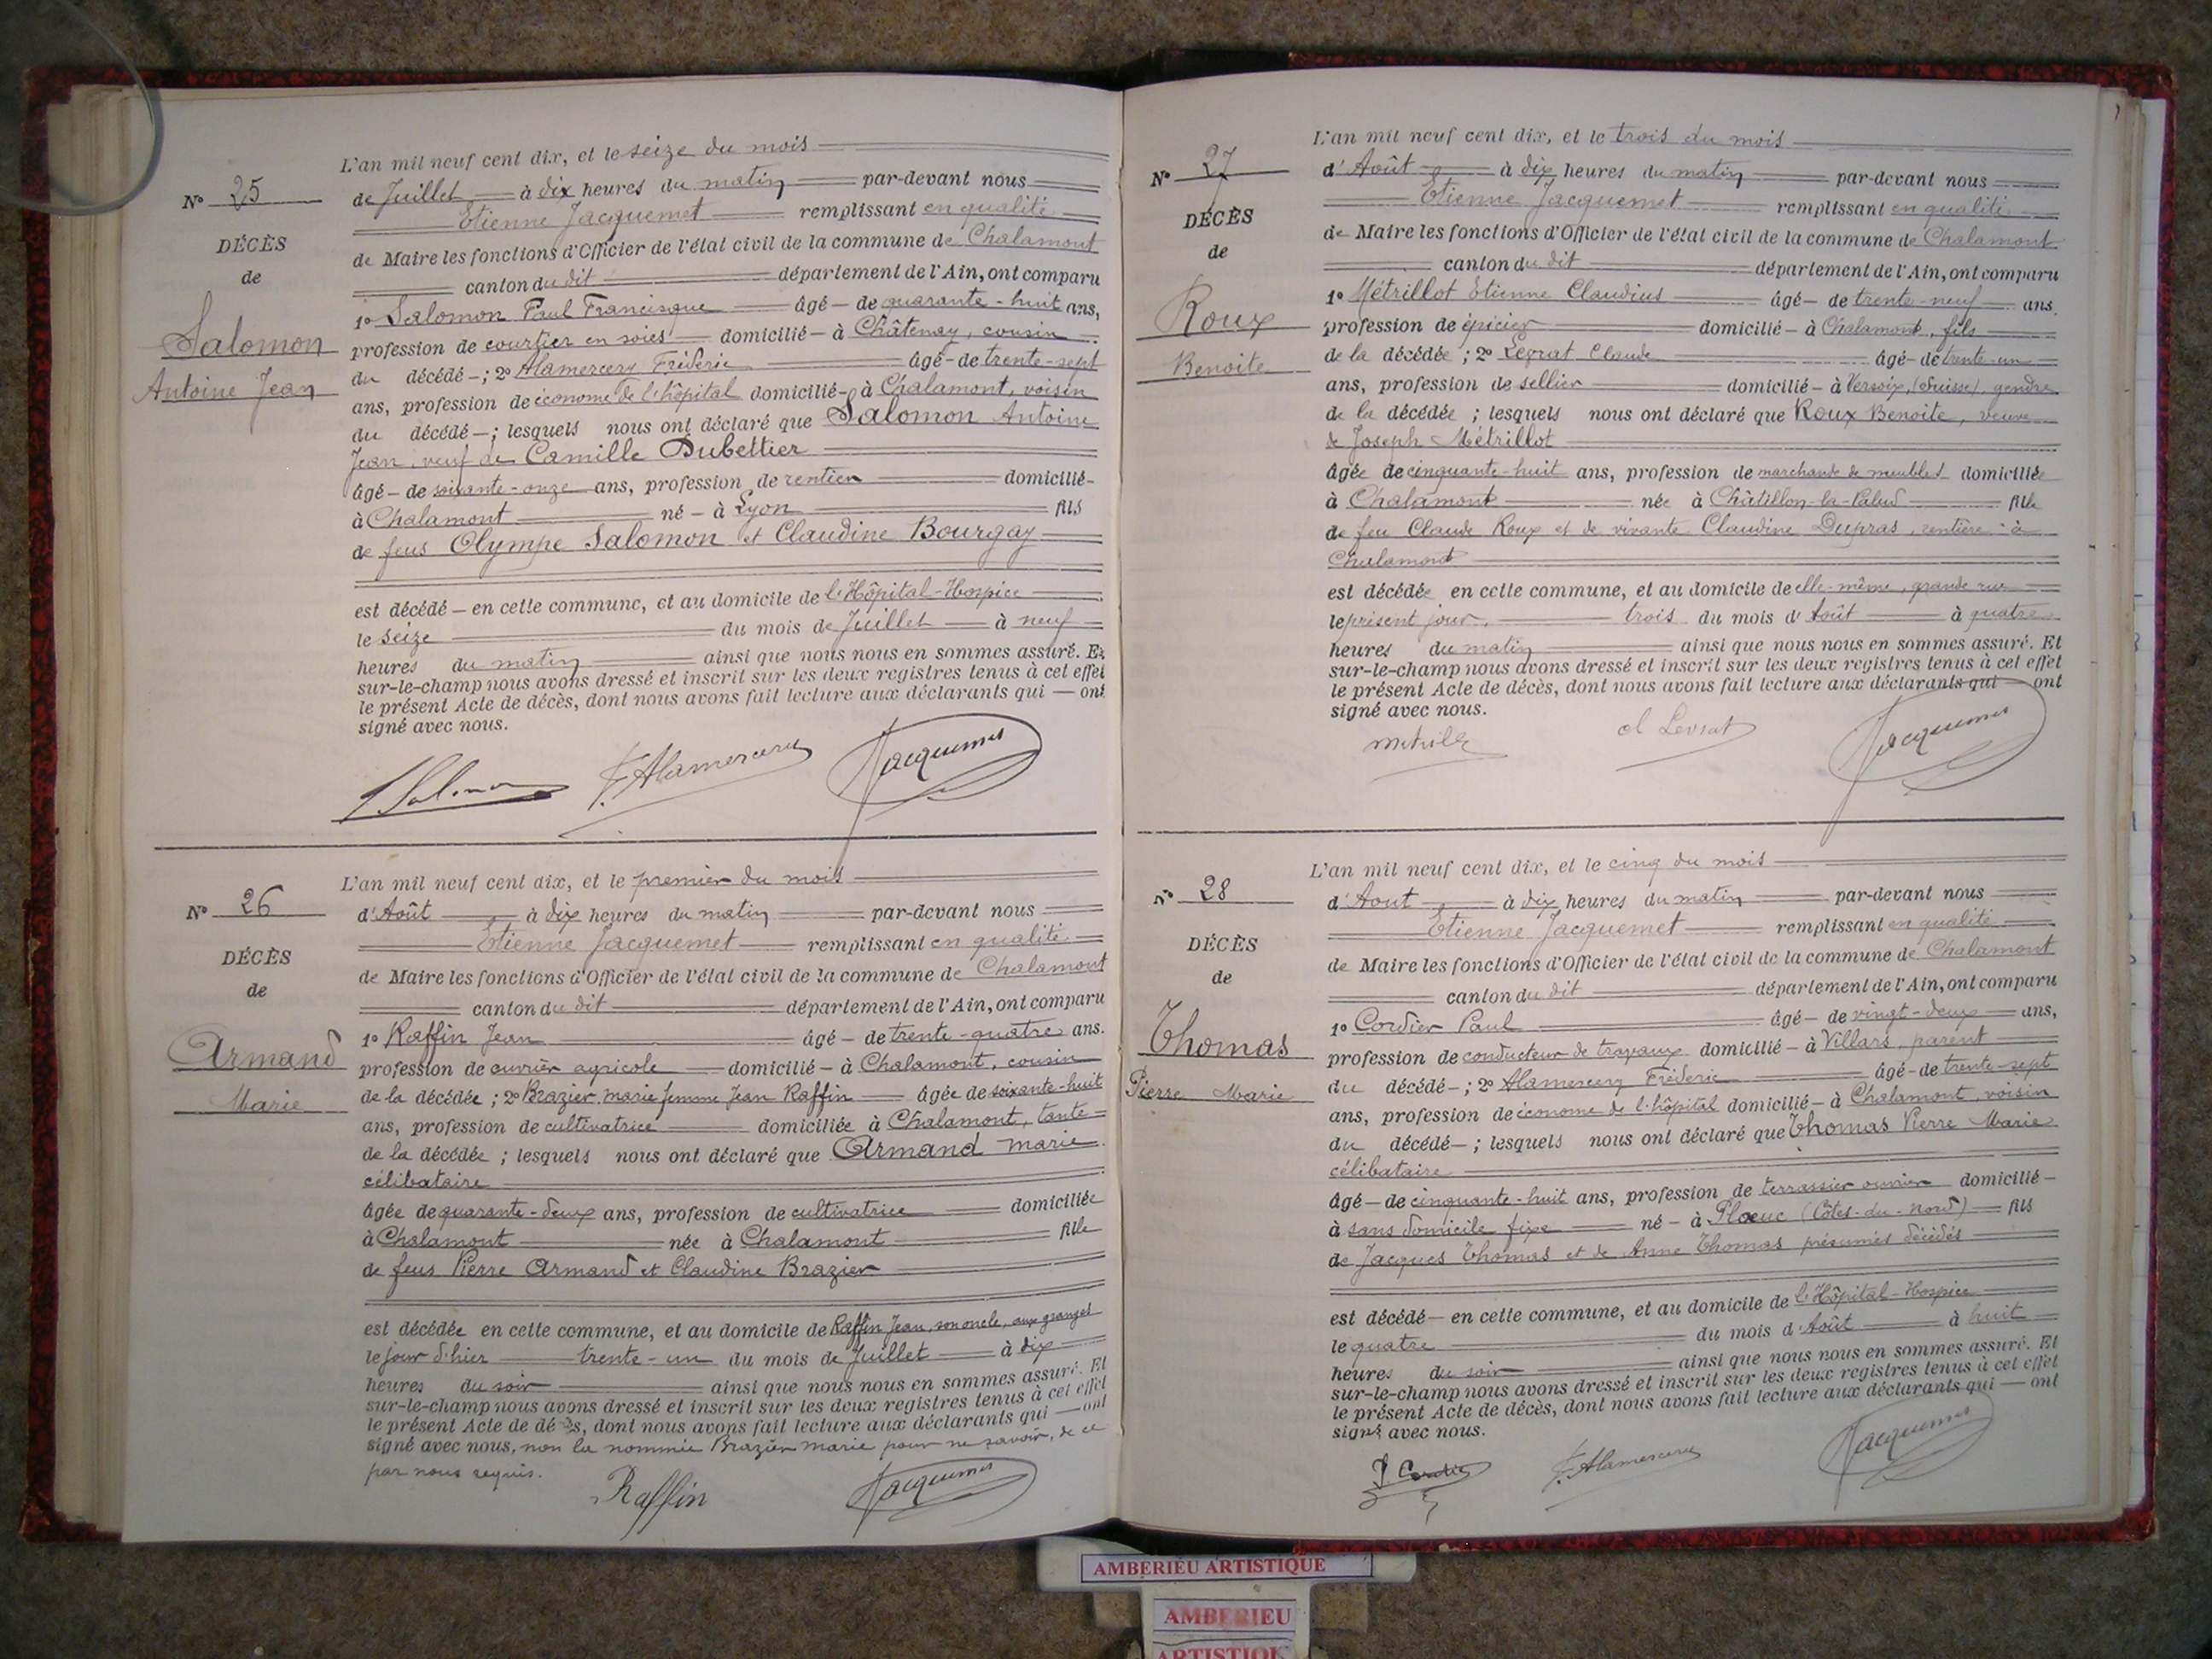 N° 25
DÉCÈS
de
Salomon
Antoine Jean
L'an mil neuf cent dix, et le seize du mois
de Juillet à dix heures du matin par-devant nous
Etienne Jacquemet remplissant en qualité
de Maire les fonctions d'Officier de l'état civil de la commune de Chalamont
canton du dit département de l'Ain, ont comparu
1° Salomon Paul Francisque âgé de quarante-huit ans,
profession de courtier en soies domicilié à Châtenay, cousin
du décédé ; 2° Alamercery Fréderic âgé de trente-sept
ans, profession de économe de l'hôpital domicilié à Chalamont, voisin
du décédé ; lesquels nous ont déclaré que Salomon Antoine
Jean, veuf de Camille Dubettier
âgé de soixante-onze ans, profession de rentier domicilié
à Chalamont né à Lyon fils
de feus Olympe Salomon et Claudine Bourgay
est décédé en cette commune, et au domicile de l'Hôpital-Hospice
le seize du mois de Juillet à neuf
heures du matin ainsi que nous nous en sommes assuré. Et
sur-le-champ nous avons dressé et inscrit sur les deux registres tenus à cet effet
le présent Acte de décès, dont nous avons fait lecture aux déclarants qui ont
signé avec nous.
Salomon F. Alamercery Jacquemet
N° 26
DÉCÈS
de
Armand
Marie
L'an mil neuf cent dix, et le premier du mois
d'Août à dix heures du matin par-devant nous
Etienne Jacquemet remplissant en qualité
de Maire les fonctions d'Officier de l'état civil de la commune de Chalamont
canton du dit département de l'Ain, ont comparu
1° Raffin Jean âgé de trente-quatre ans.
profession de ouvrier agricole domicilié à Chalamont, cousin
de la décédée ; 2° Brazier marie femme Jean Raffin âgée de soixante-huit
ans, profession de cultivatrice domiciliée à Chalamont, tante
de la décédée ; lesquels nous ont déclaré que Armand marie
célibataire
âgée de quarante-deux ans, profession de cultivatrice domiciliée
à Chalamont née à Chalamont fille
de feus Pierre Armand et Claudine Brazier
est décédée en cette commune, et au domicile de Raffin Jean, son oncle, aux granges
le jour d'hier trente-un du mois de Juillet à dix
heures du soir ainsi que nous nous en sommes assuré. Et
sur-le-champ nous avons dressé et inscrit sur les deux registres tenus à cet effet
le présent Acte de décès, dont nous avons fait lecture aux déclarants qui ont
signé avec nous, non la nommée Brazier marie pour ne savoir, de ce
par nous requis.
Raffin Jacquemet
N° 27
DÉCÈS
de
Roux
Benoite
L'an mil neuf cent dix, et le trois du mois
d'Août à dix heures du matin par-devant nous
Etienne Jacquemet remplissant en qualité
de Maire les fonctions d'Officier de l'état civil de la commune de Chalamont
canton du dit département de l'Ain, ont comparu
1° Métrillot Etienne Claudius âgé de trente-neuf ans.
profession de épicier domicilié à Chalamont, fils
de la décédée ; 2° Claude âgé de trente-un
ans, profession de sellier domicilié à Versoix, (Suisse), gendre
de la décédée ; lesquels nous ont déclaré que Roux Benoite, veuve
de Joseph Métrillot
âgée de cinquante-huit ans, profession de marchande de meubles domiciliée
à Chalamont née à Châtillon-la-Palud fille
de feu Claude Roux et de vivante Claudine Dupras, rentière à
Chalamont
est décédée en cette commune, et au domicile de elle-même, grande rue
le présent jour, trois du mois d'Août à quatre
heures du matin ainsi que nous nous en sommes assuré. Et
sur-le-champ nous avons dressé et inscrit sur les deux registres tenus à cet effet
le présent Acte de décès, dont nous avons fait lecture aux déclarants qui ont
signé avec nous.
cl Levrat Jacquemet
N° 28
DÉCÈS
de
Thomas
Pierre Marie
L'an mil neuf cent dix, et le cinq du mois
d'Aout à dix heures du matin par-devant nous
Etienne Jacquemet remplissant en qualité
de Maire les fonctions d'Officier de l'état civil de la commune de Chalamont
canton du dit département de l'Ain, ont comparu
1° Cordier Paul âgé de vingt-deux ans,
profession de conducteur de travaux domicilié à Villars, parent
du décédé ; 2° Alamercery Fréderic âgé de trente-sept
ans, profession de économe de l'hôpital domicilié à Chalamont, voisin
du décédé ; lesquels nous ont déclaré que Thomas Pierre Marie
célibataire
âgé de cinquante-huit ans, profession de terrassier ouvrier domicilié
à sans domicile fixe né à Plœuc (Côtes-du-nord) fils
de Jacques Thomas et de Anne Thomas présumés décédés
est décédé en cette commune, et au domicile de l'Hôpital-Hospice
le quatre du mois d'Août à huit
heures du soir ainsi que nous nous en sommes assuré. Et
sur-le-champ nous avons dressé et inscrit sur les deux registres tenus à cet effet
le présent Acte de décès, dont nous avons fait lecture aux déclarants qui ont
signé avec nous.
P. Cordier F. Alamercery Jacquemet
AMBERIEU ARTISTIQUE
AMBERIEU